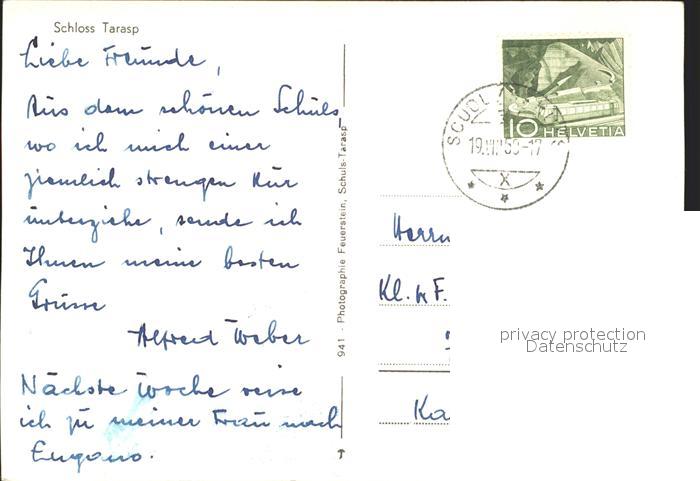 Schloss Tarasp
Liebe Freunde,
Aus dem schönen Schuls,
wo ich mich einer
ziemlich strengen Kur
unterziehe, sende ich
Ihnen meine besten
Grüsse
Alfred Weber
Nächste Woche reise
ich zu meiner Frau nach
Lugano.
941 - Photographie Feuerstein, Schuls-Tarasp
10 HELVETIA
SCUOL
19.
Herrn
Kl.
Ka
privacy protection
Datenschutz